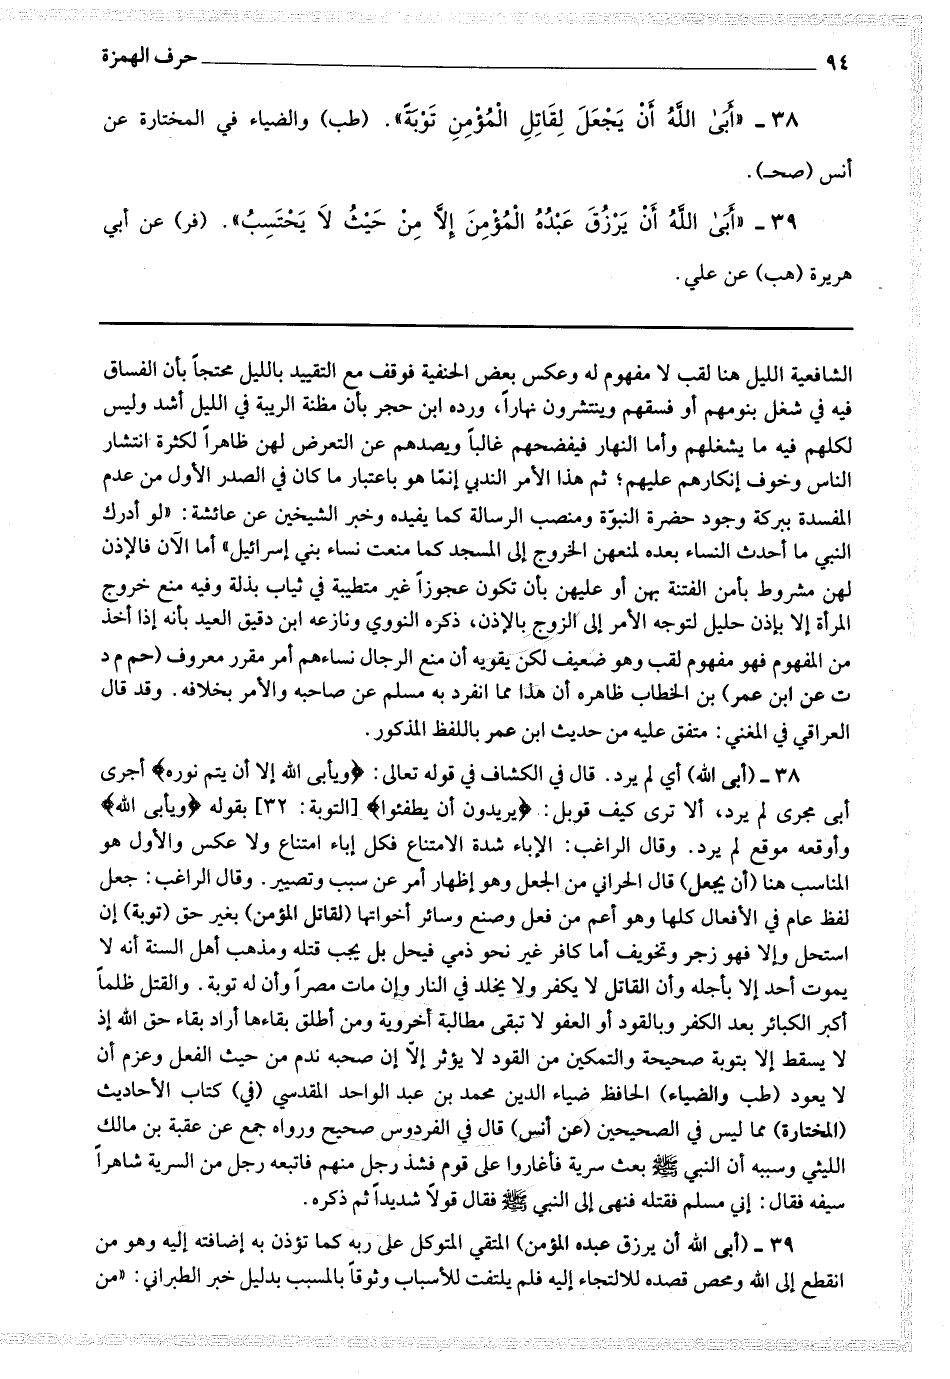 ٩٤ حرف الهمزة
٣٨ ـ «أَبَىٰ اللَّهُ أَنْ يَجْعَلَ لِقَاتِلِ الْمُؤْمِنِ تَوْبَةً». (طب) والضياء في المختارة عن
أنس (صحـ).
٣٩ ـ «أَبَىٰ اللَّهُ أَنْ يَرْزُقَ عَبْدَهُ الْمُؤْمِنَ إِلاَّ مِنْ حَيْثُ لاَ يَحْتَسِبُ». (فر) عن أبي
هريرة (هب) عن علي.
الشافعية الليل هنا لقب لا مفهوم له وعكس بعض الحنفية فوقف مع التقييد بالليل محتجاً بأن الفساق
فيه في شغل بنومهم أو فسقهم وينتشرون نهاراً، ورده ابن حجر بأن مظنة الريبة في الليل أشد وليس
لكلهم فيه ما يشغلهم وأما النهار فيفضحهم غالباً ويصدهم عن التعرض لهن ظاهراً لكثرة انتشار
الناس وخوف إنكارهم عليهم؛ ثم هذا الأمر الندبي إنمّا هو باعتبار ما كان في الصدر الأول من عدم
المفسدة ببركة وجود حضرة النبوّة ومنصب الرسالة كما يفيده وخبر الشيخين عن عائشة: «لو أدرك
النبي ما أحدث النساء بعده لمنعهن الخروج إلى المسجد كما منعت نساء بني إسرائيل» أما الآن فالإذن
لهن مشروط بأمن الفتنة بهن أو عليهن بأن تكون عجوزاً غير متطيبة في ثياب بذلة وفيه منع خروج
المرأة إلا بإذن حليل لتوجه الأمر إلى الزوج بالإذن، ذكره النووي ونازعه ابن دقيق العيد بأنه إذا أخذ
من المفهوم فهو مفهوم لقب وهو ضعيف لكن يقويه أن منع الرجال نساءهم أمر مقرر معروف (حم م د
ت عن ابن عمر) بن الخطاب ظاهره أن هذا مما انفرد به مسلم عن صاحبه والأمر بخلافه. وقد قال
العراقي في المغني: متفق عليه من حديث ابن عمر باللفظ المذكور.
٣٨ ـ (أبى الله) أي لم يرد. قال في الكشاف في قوله تعالى: ﴿ويأبى الله إلا أن يتم نوره﴾ أجرى
أبى مجرى لم يرد، ألا ترى كيف قوبل: ﴿يريدون أن يطفئوا﴾ [التوبة: ٣٢] بقوله ﴿ويأبى الله﴾
وأوقعه موقع لم يرد. وقال الراغب: الإباء شدة الامتناع فكل إباء امتناع ولا عكس والأول هو
المناسب هنا (أن يجعل) قال الحراني من الجعل وهو إظهار أمر عن سبب وتصيير. وقال الراغب: جعل
لفظ عام في الأفعال كلها وهو أعم من فعل وصنع وسائر أخواتها (لقاتل المؤمن) بغير حق (توبة) إن
استحل وإلا فهو زجر وتخويف أما كافر غير نحو ذمي فيحل بل يجب قتله ومذهب أهل السنة أنه لا
يموت أحد إلا بأجله وأن القاتل لا يكفر ولا يخلد في النار وإن مات مصراً وأن له توبة. والقتل ظلماً
أكبر الكبائر بعد الكفر وبالقود أو العفو لا تبقى مطالبة أخروية ومن أطلق بقاءها أراد بقاء حق الله إذ
لا يسقط إلا بتوبة صحيحة والتمكين من القود لا يؤثر إلاّ إن صحبه ندم من حيث الفعل وعزم أن
لا يعود (طب والضياء) الحافظ ضياء الدين محمد بن عبد الواحد المقدسي (في) كتاب الأحاديث
(المختارة) مما ليس في الصحيحين (عن أنس) قال في الفردوس صحيح ورواه جمع عن عقبة بن مالك
الليثي وسببه أن النبي ﷺ بعث سرية فأغاروا على قوم فشذ رجل منهم فاتبعه رجل من السرية شاهراً
سيفه فقال: إني مسلم فقتله فنهى إلى النبي ﷺ فقال قولاً شديداً ثم ذكره.
٣٩ ـ (أبى الله أن يرزق عبده المؤمن) المتقي المتوكل على ربه كما تؤذن به إضافته إليه وهو من
انقطع إلى الله ومحص قصده للالتجاء إليه فلم يلتفت للأسباب وثوقاً بالمسبب بدليل خبر الطبراني: «من